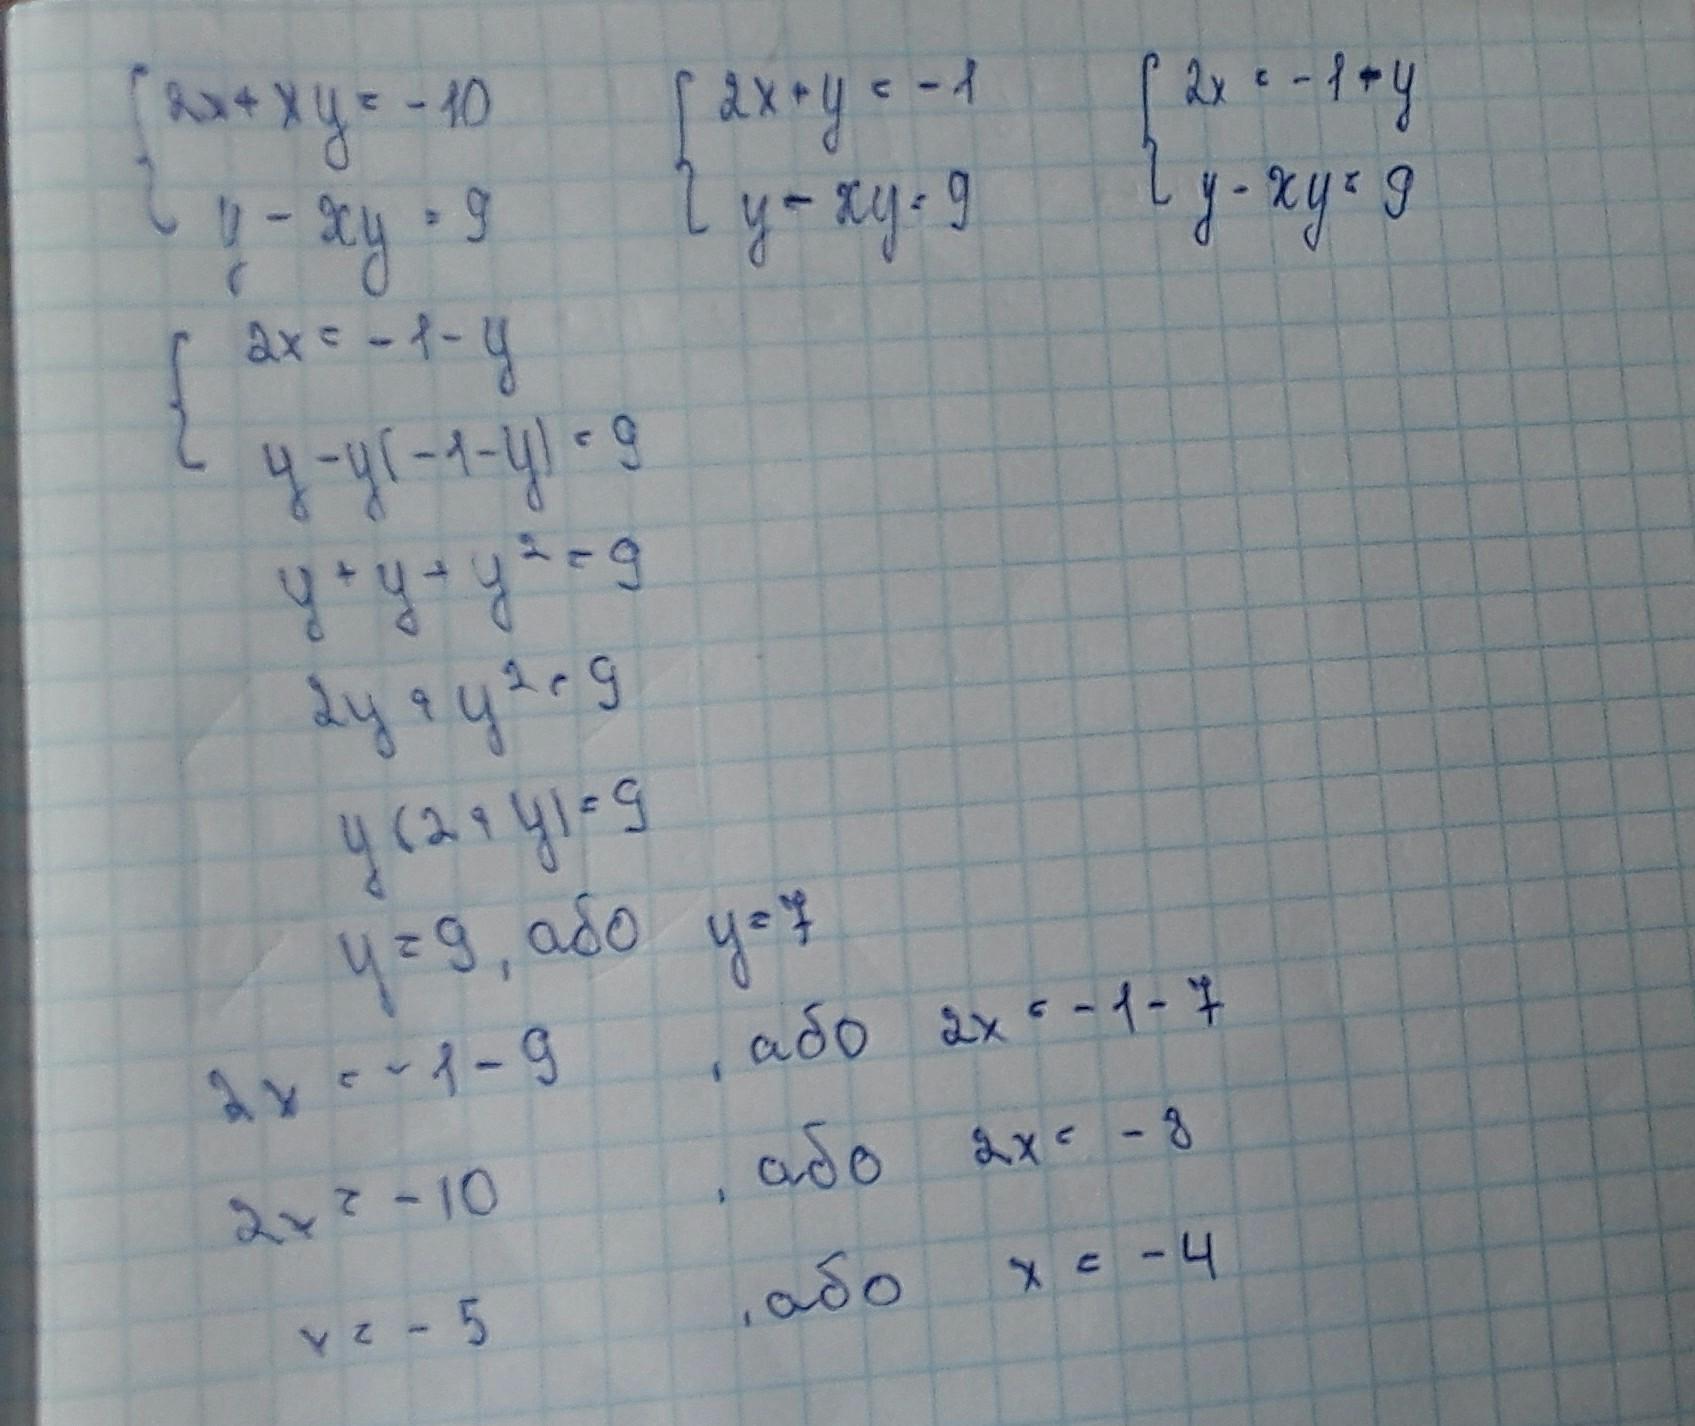 2x + xy = -10
y - xy = 9
2x + y = -1
y - xy = 9
2x = -1 - y
y - xy = 9
2x = -1 - y
y - y(-1-y) = 9
y + y + y² = 9
2y + y² = 9
y(2+y) = 9
y = 9, або y = 7
2x = -1 - 9 , або 2x = -1 - 7
2x = -10 , або 2x = -8
x = -5 , або x = -4